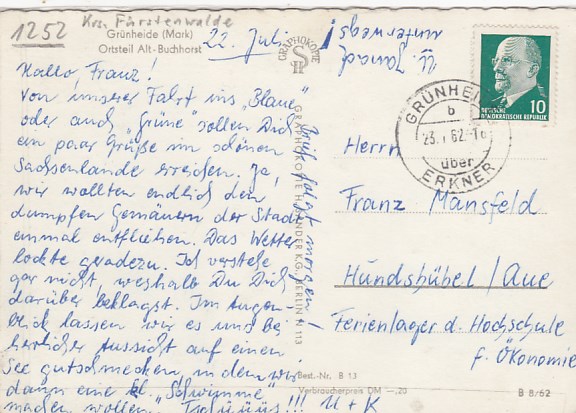 1252 Krs. Fürstenwalde
Grünheide (Mark)
Ortsteil Alt-Buchhorst
22. Juli
Hallo Franz!
Von unserer Fahrt ins „Blaue"
oder auch „Grüne" sollen Dich
ein paar Grüße im schönen
Sachsenlande erreichen. Ja,
wir wollten endlich den
dumpfen Gemäuern der Stadt
einmal entfliehen. Das Wetter
lockte geradezu. Ich verstehe
gar nicht, weshalb Du Dich
darüber beklagst. Im Augen-
blick lassen wir es uns bei
herrlicher Aussicht auf einen
See gutschmecken, in dem wir
dann eine kl. „Schwimme"
machen wollen. Tschüüüs!!! U + K
Brief folgt morgen!
GRAPHOKOPIE
GRAPHOKOPIE H. SANDER K.G., BERLIN N 113
unterwegs!
GRÜNHEIDE
b
23. 7. 62-16
über
ERKNER
10
DEUTSCHE
DEMOKRATISCHE REPUBLIK
Herrn
Franz Mansfeld
Hundshübel / Aue
Ferienlager d. Hochschule
f. Ökonomie
Best.-Nr. B 13
Verbraucherpreis DM —,20
B 8/62